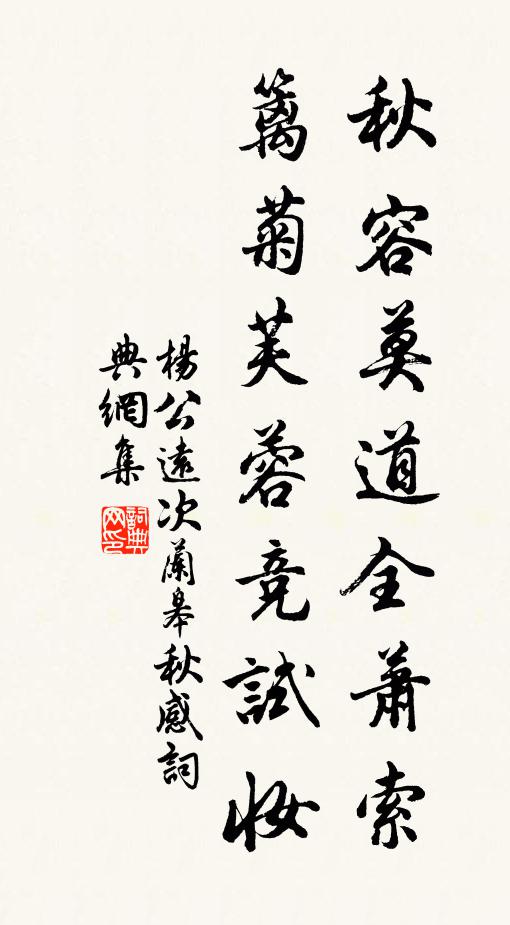 秋容莫道全蕭索
籬菊芙蓉竞試妝
楊公遠次蘭皋秋感詞
典網集
詞典
网印